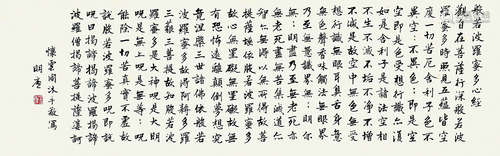 般若波羅蜜多心經
觀自在菩薩行深般若波
羅蜜多時照見五蘊皆空
度一切苦厄舍利子色不
異空空不異色色即是空
空即是色受想行識亦復
如是舍利子是諸法空相
不生不滅不垢不淨不增
不減是故空中無色無受
想行識無眼耳鼻舌身意
無色聲香味觸法無眼界
乃至無意識界無無明亦
無無明盡乃至無老死亦
無老死盡無苦集滅道無
智亦無得以無所得故菩
提薩埵依般若波羅蜜多
故心無罣礙無罣礙故無
有恐怖遠離顛倒夢想究
竟涅槃三世諸佛依般若
波羅蜜多故得阿耨多羅
三藐三菩提故知般若波
羅蜜多是大神呪是大明
呪是無上呪是無等等呪
能除一切苦真實不虛故
說般若波羅蜜多呪即說
呪曰揭諦揭諦波羅揭諦
波羅僧揭諦菩提薩婆訶
懷雲閣沐手敬寫
明